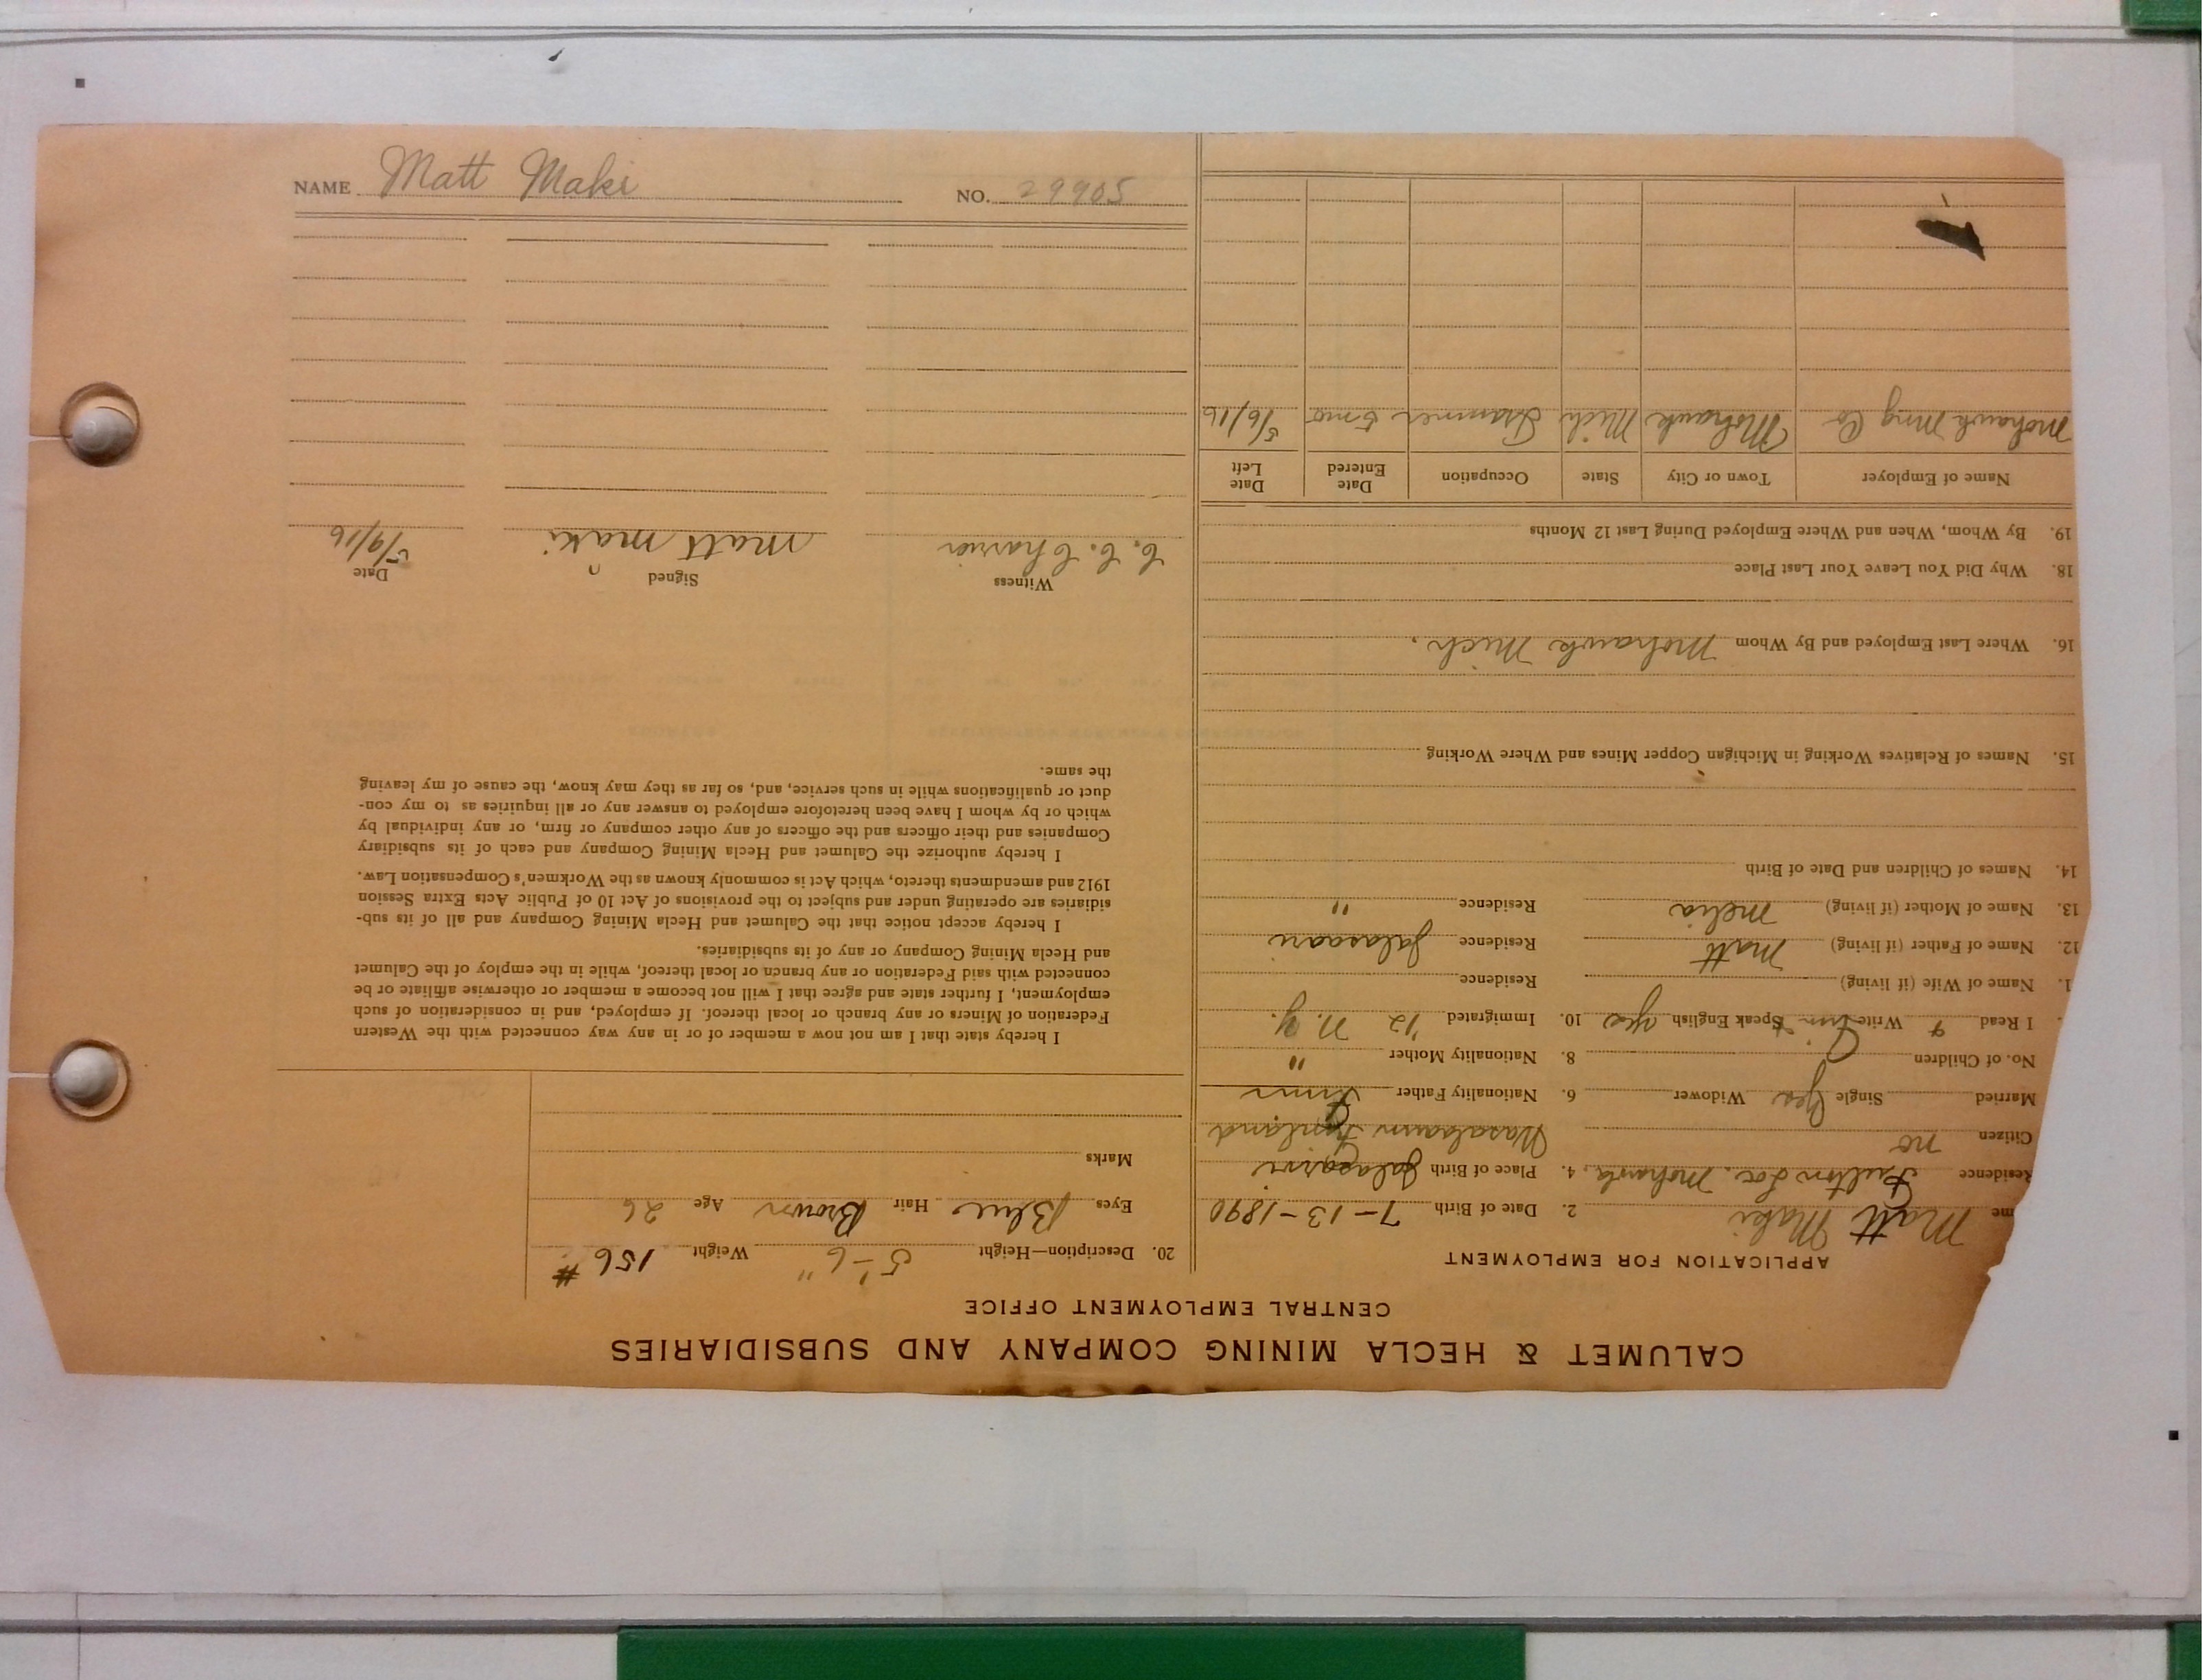 CALUMET & HECLA MINING COMPANY AND SUBSIDIARIES
CENTRAL EMPLOYMENT OFFICE
APPLICATION FOR EMPLOYMENT
me Matt Maki 2. Date of Birth 7-13-1890
Residence Fulton Loc. Mohawk, 4. Place of Birth
Citizen no Finland
Married Single Yes Widower 6. Nationality Father Finn
No. of Children 8. Nationality Mother "
I Read & Write Finn Speak English yes 10. Immigrated '12 N.Y.
1. Name of Wife (if living) Residence
12. Name of Father (if living) Matt Residence
13. Name of Mother (if living) Residence "
14. Names of Children and Date of Birth
15. Names of Relatives Working in Michigan Copper Mines and Where Working
16. Where Last Employed and By Whom Mohawk Mich.
18. Why Did You Leave Your Last Place
19. By Whom, When and Where Employed During Last 12 Months
Name of Employer Town or City State Occupation Date Entered Date Left
Mohawk Mng Co Mohawk Mich Trammer 5 mo 5/6/16
20. Description—Height 5'-6" Weight 156 #
Eyes Blue Hair Brown Age 26
Marks
I hereby state that I am not now a member of or in any way connected with the Western
Federation of Miners or any branch or local thereof. If employed, and in consideration of such
employment, I further state and agree that I will not become a member or otherwise affiliate or be
connected with said Federation or any branch or local thereof, while in the employ of the Calumet
and Hecla Mining Company or any of its subsidiaries.
I hereby accept notice that the Calumet and Hecla Mining Company and all of its sub-
sidiaries are operating under and subject to the provisions of Act 10 of Public Acts Extra Session
1912 and amendments thereto, which Act is commonly known as the Workmen's Compensation Law.
I hereby authorize the Calumet and Hecla Mining Company and each of its subsidiary
Companies and their officers and the officers of any other company or firm, or any individual by
which or by whom I have been heretofore employed to answer any or all inquiries as to my con-
duct or qualifications while in such service, and, so far as they may know, the cause of my leaving
the same.
Witness Signed Date
C. C. matt maki 5/9/16
NAME Matt Maki NO. 29905